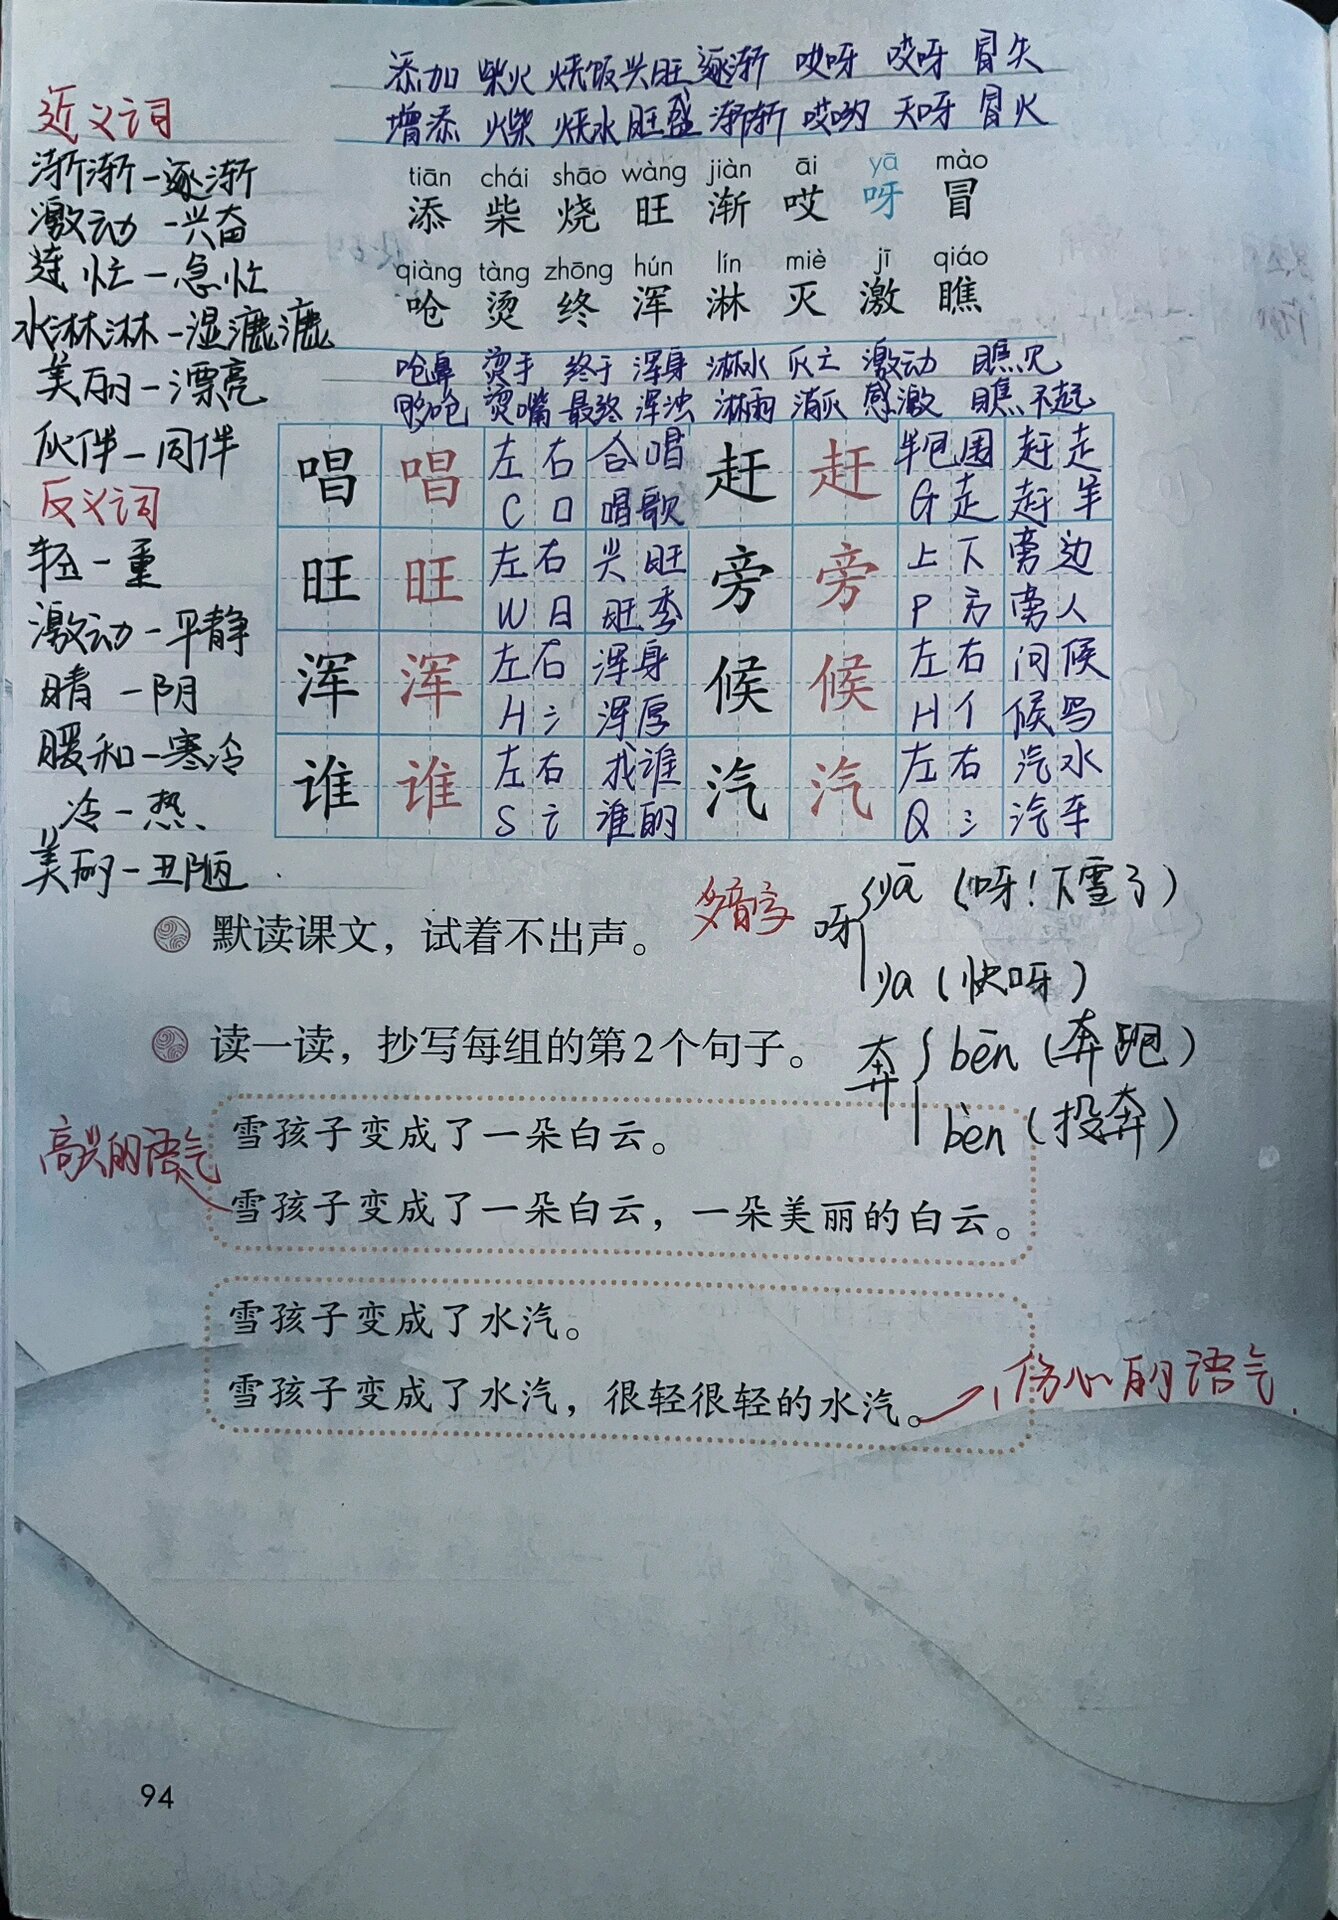 添加 柴火 烧饭 兴旺 逐渐 哎呀 哎呀 冒失
增添 火柴 烧水 旺盛 渐渐 哎哟 天呀 冒火
近义词
渐渐-逐渐
激动-兴奋
连忙-急忙
水淋淋-湿漉漉
美丽-漂亮
伙伴-同伴
反义词
轻-重
激动-平静
晴-阴
暖和-寒冷
冷-热
美丽-丑陋
tiān chái shāo wàng jiàn āi yā mào
添 柴 烧 旺 渐 哎 呀 冒
qiàng tàng zhōng hún lín miè jī qiáo
呛 烫 终 浑 淋 灭 激 瞧
呛鼻 烫手 终于 浑身 淋水 灭亡 激动 瞧见
够呛 烫嘴 最终 浑浊 淋雨 消灭 感激 瞧不起
唱 唱 左右 合唱 赶 赶 半包围 赶走
C 口 唱歌 G 走 赶羊
旺 旺 左右 兴旺 旁 旁 上下 旁边
W 日 旺季 P 方 旁人
浑 浑 左右 浑身 候 候 左右 问候
H 氵 浑厚 H 亻 候鸟
谁 谁 左右 找谁 汽 汽 左右 汽水
S 讠 谁的 Q 氵 汽车
默读课文，试着不出声。
多音字 呀 yā（呀！下雪了）
ya（快呀）
读一读，抄写每组的第2个句子。
奔 bēn（奔跑）
bèn（投奔）
雪孩子变成了一朵白云。
高兴的语气
雪孩子变成了一朵白云，一朵美丽的白云。
雪孩子变成了水汽。
雪孩子变成了水汽，很轻很轻的水汽。
伤心的语气
94